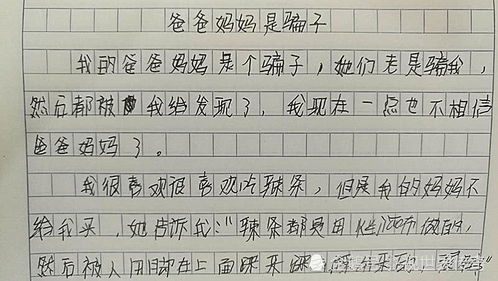 爸爸妈妈是骗子
我的爸爸妈妈是个骗子，她们老是骗我，
然后都被我给发现了，我现在一点也不相信
爸爸妈妈了。
我很喜欢很喜欢吃辣条，但是我的妈妈不
给我买，她告诉我：“辣条都是用垃圾布做的，
然后被人用脚在上面踩来踩